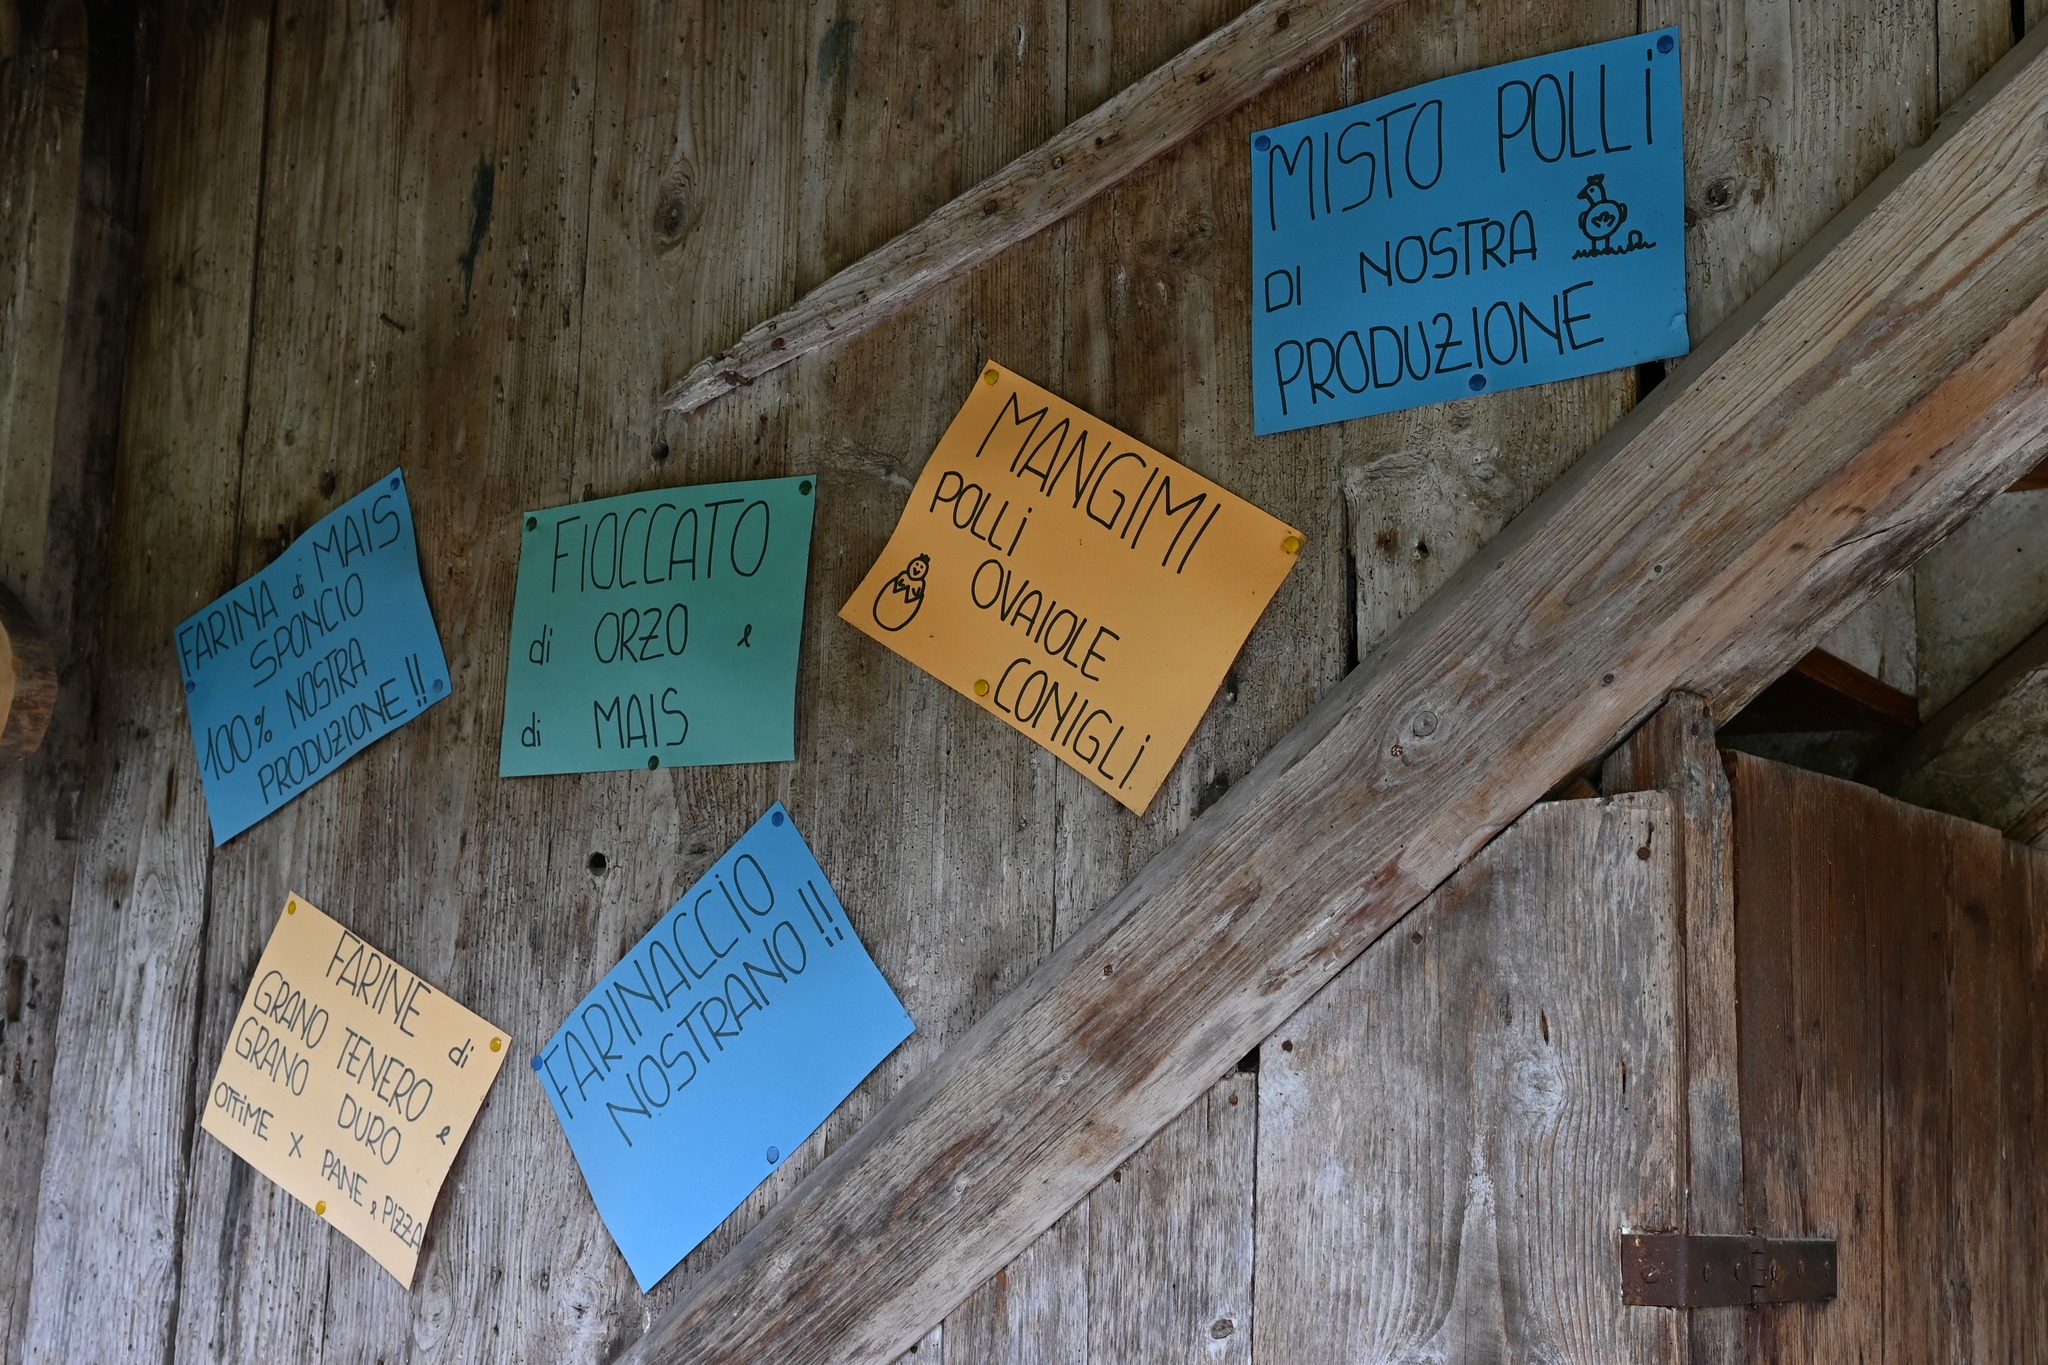 MISTO POLLi
DI NOSTRA
PRODUZIONE
MANGIMI
POLLi
OVAIOLE
CONIGLi
FIOCCATO
di ORZO e
di MAIS
FARINA di MAIS
SPONCIO
100% NOSTRA
PRODUZIONE!!
FARINE di
GRANO TENERO e
GRANO DURO
OTTiME X PANE e PIZZA
FARINACCiO
NOSTRANO!!